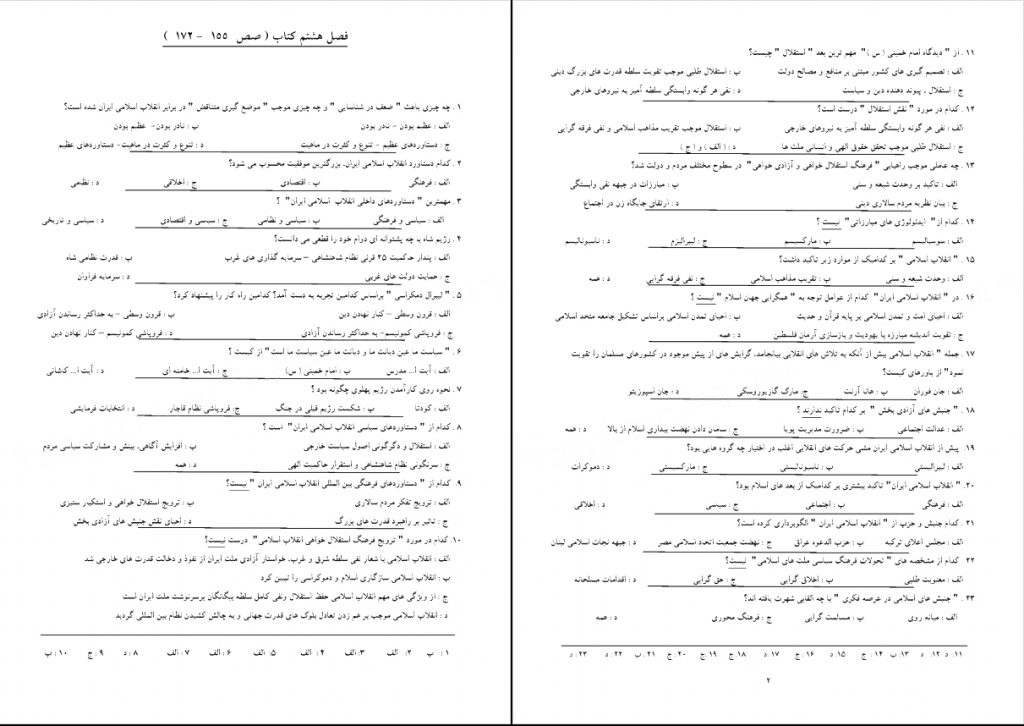 فصل هشتم کتاب ( صص ۱۵۵ - ۱۷۲ )
۱ . چه چیزی باعث " ضعف در شناسایی " و چه چیزی موجب " موضع گیری متناقض " در برابر انقلاب اسلامی ایران شده است؟
الف : عظیم بودن - نادر بودن ب : نادر بودن- عظیم بودن
ج : دستاوردهای عظیم - تنوع و کثرت در ماهیت د : تنوع و کثرت در ماهیت- دستاوردهای عظیم
۲ . کدام دستاورد انقلاب اسلامی ایران، بزرگترین موفقیت محسوب می شود؟
الف : فرهنگی ب : اقتصادی ج : اخلاقی د : نظمی
۳ . مهمترین " دستاوردهای داخلی انقلاب اسلامی ایران" ؟
الف : سیاسی و فرهنگی ب : سیاسی و نظامی ج : سیاسی و اقتصادی د : سیاسی و تاریخی
۴ . رژیم شاه با چه پشتوانه ای دوام خود را قطعی می دانست؟
الف : پندار حاکمیت ۲۵ قرنی نظام شاهنشاهی – سرمایه گذاری های غرب ب : قدرت نظامی شاه
ج : حمایت دولت های غربی د : سرمایه فراوان
۵ . " لیبرال دمکراسی " براساس کدامین تجربه به دست آمد؟ کدامین راه کار را پیشنهاد کرد؟
الف : قرون وسطی – کنار نهادن دین ب : قرون وسطی – به حداکثر رساندن آزادی
ج : فروپاشی کمونیسم- به حداکثر رساندن آزادی د : فروپاشی کمونیسم – کنار نهادن دین
۶ . " سیاست ما عین دیانت ما و دیانت ما عین سیاست ما است" از کیست ؟
الف : آیت ا... مدرس ب : امام خمینی (س) ج : آیت ا... خامنه ای د : آیت ا... کاشانی
۷ . نحوه روی کارآمدن رژیم پهلوی چگونه بود ؟
الف : کودتا ب : شکست رژیم قبلی در جنگ ج: فروپاشی نظام قاجار د : انتخابات فرمایشی
۸ . کدام از " دستاوردهای سیاسی انقلاب اسلامی ایران" است ؟
الف : استقلال و دگرگونی اصول سیاست خارجی ب : افزایش آگاهی، بینش و مشارکت سیاسی مردم
ج : سرنگونی نظام شاهنشاهی و استقرار حاکمیت الهی د : همه
۹. کدام از " دستاوردهای فرهنگی بین المللی انقلاب اسلامی ایران " نیست؟
الف : ترویج تفکر مردم سالاری ب : ترویج استقلال خواهی و استکبار ستیزی
ج : تاثیر بر راهبرد قدرت های بزرگ د : احیای نقش جنبش های آزادی بخش
۱۰. کدام در مورد " ترویج فرهنگ استقلال خواهی انقلاب اسلامی" درست نیست؟
الف : انقلاب اسلامی با شعار نفی سلطه شرق و غرب، خواستار آزادی ملت ایران از نفوذ و دخالت قدرت های خارجی شد
ب : انقلاب اسلامی سازگاری اسلام و دموکراسی را تبیین کرد
ج : از ویژگی های مهم انقلاب اسلامی حفظ استقلال ونفی کامل سلطه بیگانگان برسرنوشت ملت ایران است
د : انقلاب اسلامی موجب برهم زدن تعادل بلوک های قدرت جهانی و به چالش کشیدن نظام بین المللی گردید
۱ : ب ۲: الف ۳: الف ۴: الف ۵: الف ۶ : الف ۷ : الف ۸ : د ۹ : ج ۱۰ : ب
۱۱ . از " دیدگاه امام خمینی ( س )" مهم ترین بعد " استقلال " چیست؟
الف : تصمیم گیری های کشور مبتنی بر منافع و مصالح دولت ب : استقلال طلبی موجب تقویت سلطه قدرت های بزرگ دینی
ج : استقلال ، پیوند دهنده دین و سیاست د : نفی هر گونه وابستگی سلطه آمیز به نیروهای خارجی
۱۲ . کدام در مورد " نقش استقلال " درست است؟
الف : نفی هر گونه وابستگی سلطه آمیز به نیروهای خارجی ب : استقلال موجب تقریب مذاهب اسلامی و نفی فرقه گرایی
ج : استقلال طلبی موجب تحقق حقوق الهی و انسانی ملت ها د : ( الف ) و ( ج )
۱۳ . چه عاملی موجب راهیابی " فرهنگ استقلال خواهی و آزادی خواهی" در سطوح مختلف مردم و دولت شد؟
الف : تاکید بر وحدت شیعه و سنی ب : مبارزات در جبهه نفی وابستگی
ج : بیان نظریه مردم سالاری دینی د : ارتقای جایگاه زن در اجتماع
۱۴ . کدام از" ایدئولوژی های مبارزاتی" نیست ؟
الف : سوسیالیسم ب : مارکسیسم ج : لیبرالیزم د : ناسیونالیسم
۱۵ . " انقلاب اسلامی " بر کدامیک از موارد زیر تاکید داشت؟
الف : وحدت شیعه و سنی ب : تقریب مذاهب اسلامی ج : نفی فرقه گرایی د : همه
۱۶ . در " انقلاب اسلامی ایران" کدام از عوامل توجه به " همگرایی جهان اسلام " نیست ؟
الف : احیای امت و تمدن اسلامی بر پایه قرآن و حدیث ب : احیای تمدن اسلامی براساس تشکیل جامعه متحد اسلامی
ج : تقویت اندیشه مبارزه با یهودیت و بازسازی آرمان فلسطین د : همه
۱۷ . جمله " انقلاب اسلامی بیش از آنکه به تلاش های انقلابی بیانجامد، گرایش های از پیش موجود در کشورهای مسلمان را تقویت
نمود" از باورهای کیست؟
الف : جان فوران ب : هانا آرنت ج: مارک گازیوروسکی د : جان اسپوزیتو
۱۸ . " جنبش های آزادی بخش " بر کدام تاکید ندارند ؟
الف : عدالت اجتماعی ب : ضرورت مدیریت پویا ج : سامان دادن نهضت بیداری اسلام از بالا د : همه
۱۹ . پیش از انقلاب اسلامی ایران مشی حرکت های انقلابی اغلب در اختیار چه گروه هایی بود؟
الف : لیبرالیستی ب : ناسیونالیستی ج : مارکسیستی د : دموکرات
۲۰ . " انقلاب اسلامی ایران" تاکید بیشتری بر کدامیک از بعد های اسلام بود؟
الف : فرهنگی ب : اجتماعی ج : سیاسی د : اخلاقی
۲۱ . کدام جنبش و حزب از " انقلاب اسلامی ایران " الگوبرداری کرده است؟
الف : مجلس اعلای ترکیه ب : حزب الدعوه عراق ج : نهضت جمعیت اتحاد اسلامی مصر د : جبهه نجات اسلامی لبنان
۲۲ . کدام از مشخصه های " تحولات فرهنگ سیاسی ملت های اسلامی" نیست؟
الف : معنویت طلبی ب : اخلاق گرایی ج : حق گرایی د : اقدامات مسلحانه
۲۳ . " جنبش های اسلامی در عرصه فکری " با چه القابی شهرت یافته اند؟
الف : میانه روی ب : مسالمت گرایی ج : فرهنگ محوری د : همه
۱۱ : د ۱۲: د ۱۳: ب ۱۴: ج ۱۵: د ۱۶: ج ۱۷: د ۱۸: ج ۱۹: ج ۲۰: ج ۲۱: ب ۲۲: د ۲۳: د
۲